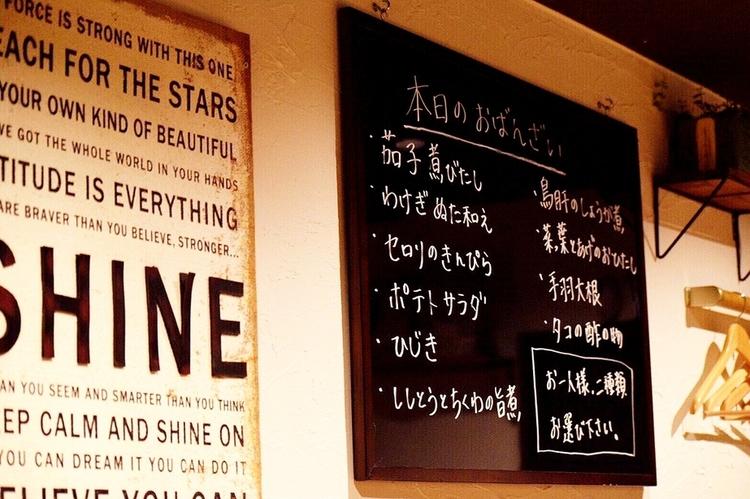 FORCE IS STRONG WITH THIS ONE
EACH FOR THE STARS
YOUR OWN KIND OF BEAUTIFUL
VE GOT THE WHOLE WORLD IN YOUR HANDS
TITUDE IS EVERYTHING
ARE BRAVER THAN YOU BELIEVE, STRONGER...
SHINE
AN YOU SEEM AND SMARTER THAN YOU THINK
EEP CALM AND SHINE ON
YOU CAN DREAM IT YOU CAN DO IT
ELIEVE YOU CAN
本日のおばんざい
・茄子煮びたし
・わけぎぬた和え
・セロリのきんぴら
・ポテトサラダ
・ひじき
・ししとうとちくわの旨煮
・鳥肝のしょうが煮
・菜葉とあげのおひたし
・手羽大根
・タコの酢の物
お一人様、二種類
お選び下さい。